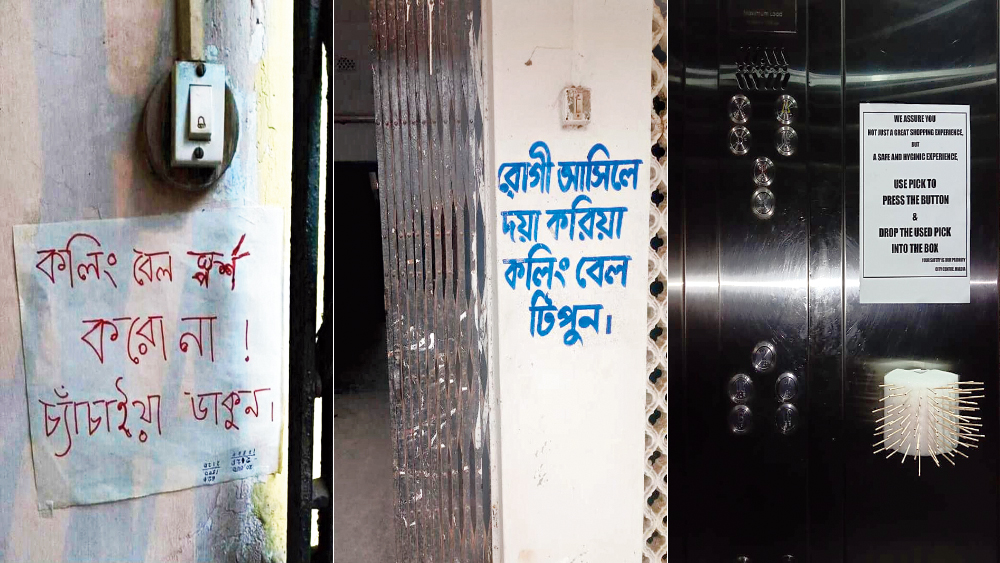 কলিং বেল স্পর্শ
করো না !
চ্যাঁচাইয়া ডাকুন।
রোগী আসিলে
দয়া করিয়া
কলিং বেল
টিপুন।
WE ASSURE YOU
NOT JUST A GREAT SHOPPING EXPERIENCE,
BUT
A SAFE AND HYGINIC EXPERIENCE.
USE PICK TO
PRESS THE BUTTON
&
DROP THE USED PICK
INTO THE BOX
YOUR SAFETY IS OUR PRIORITY